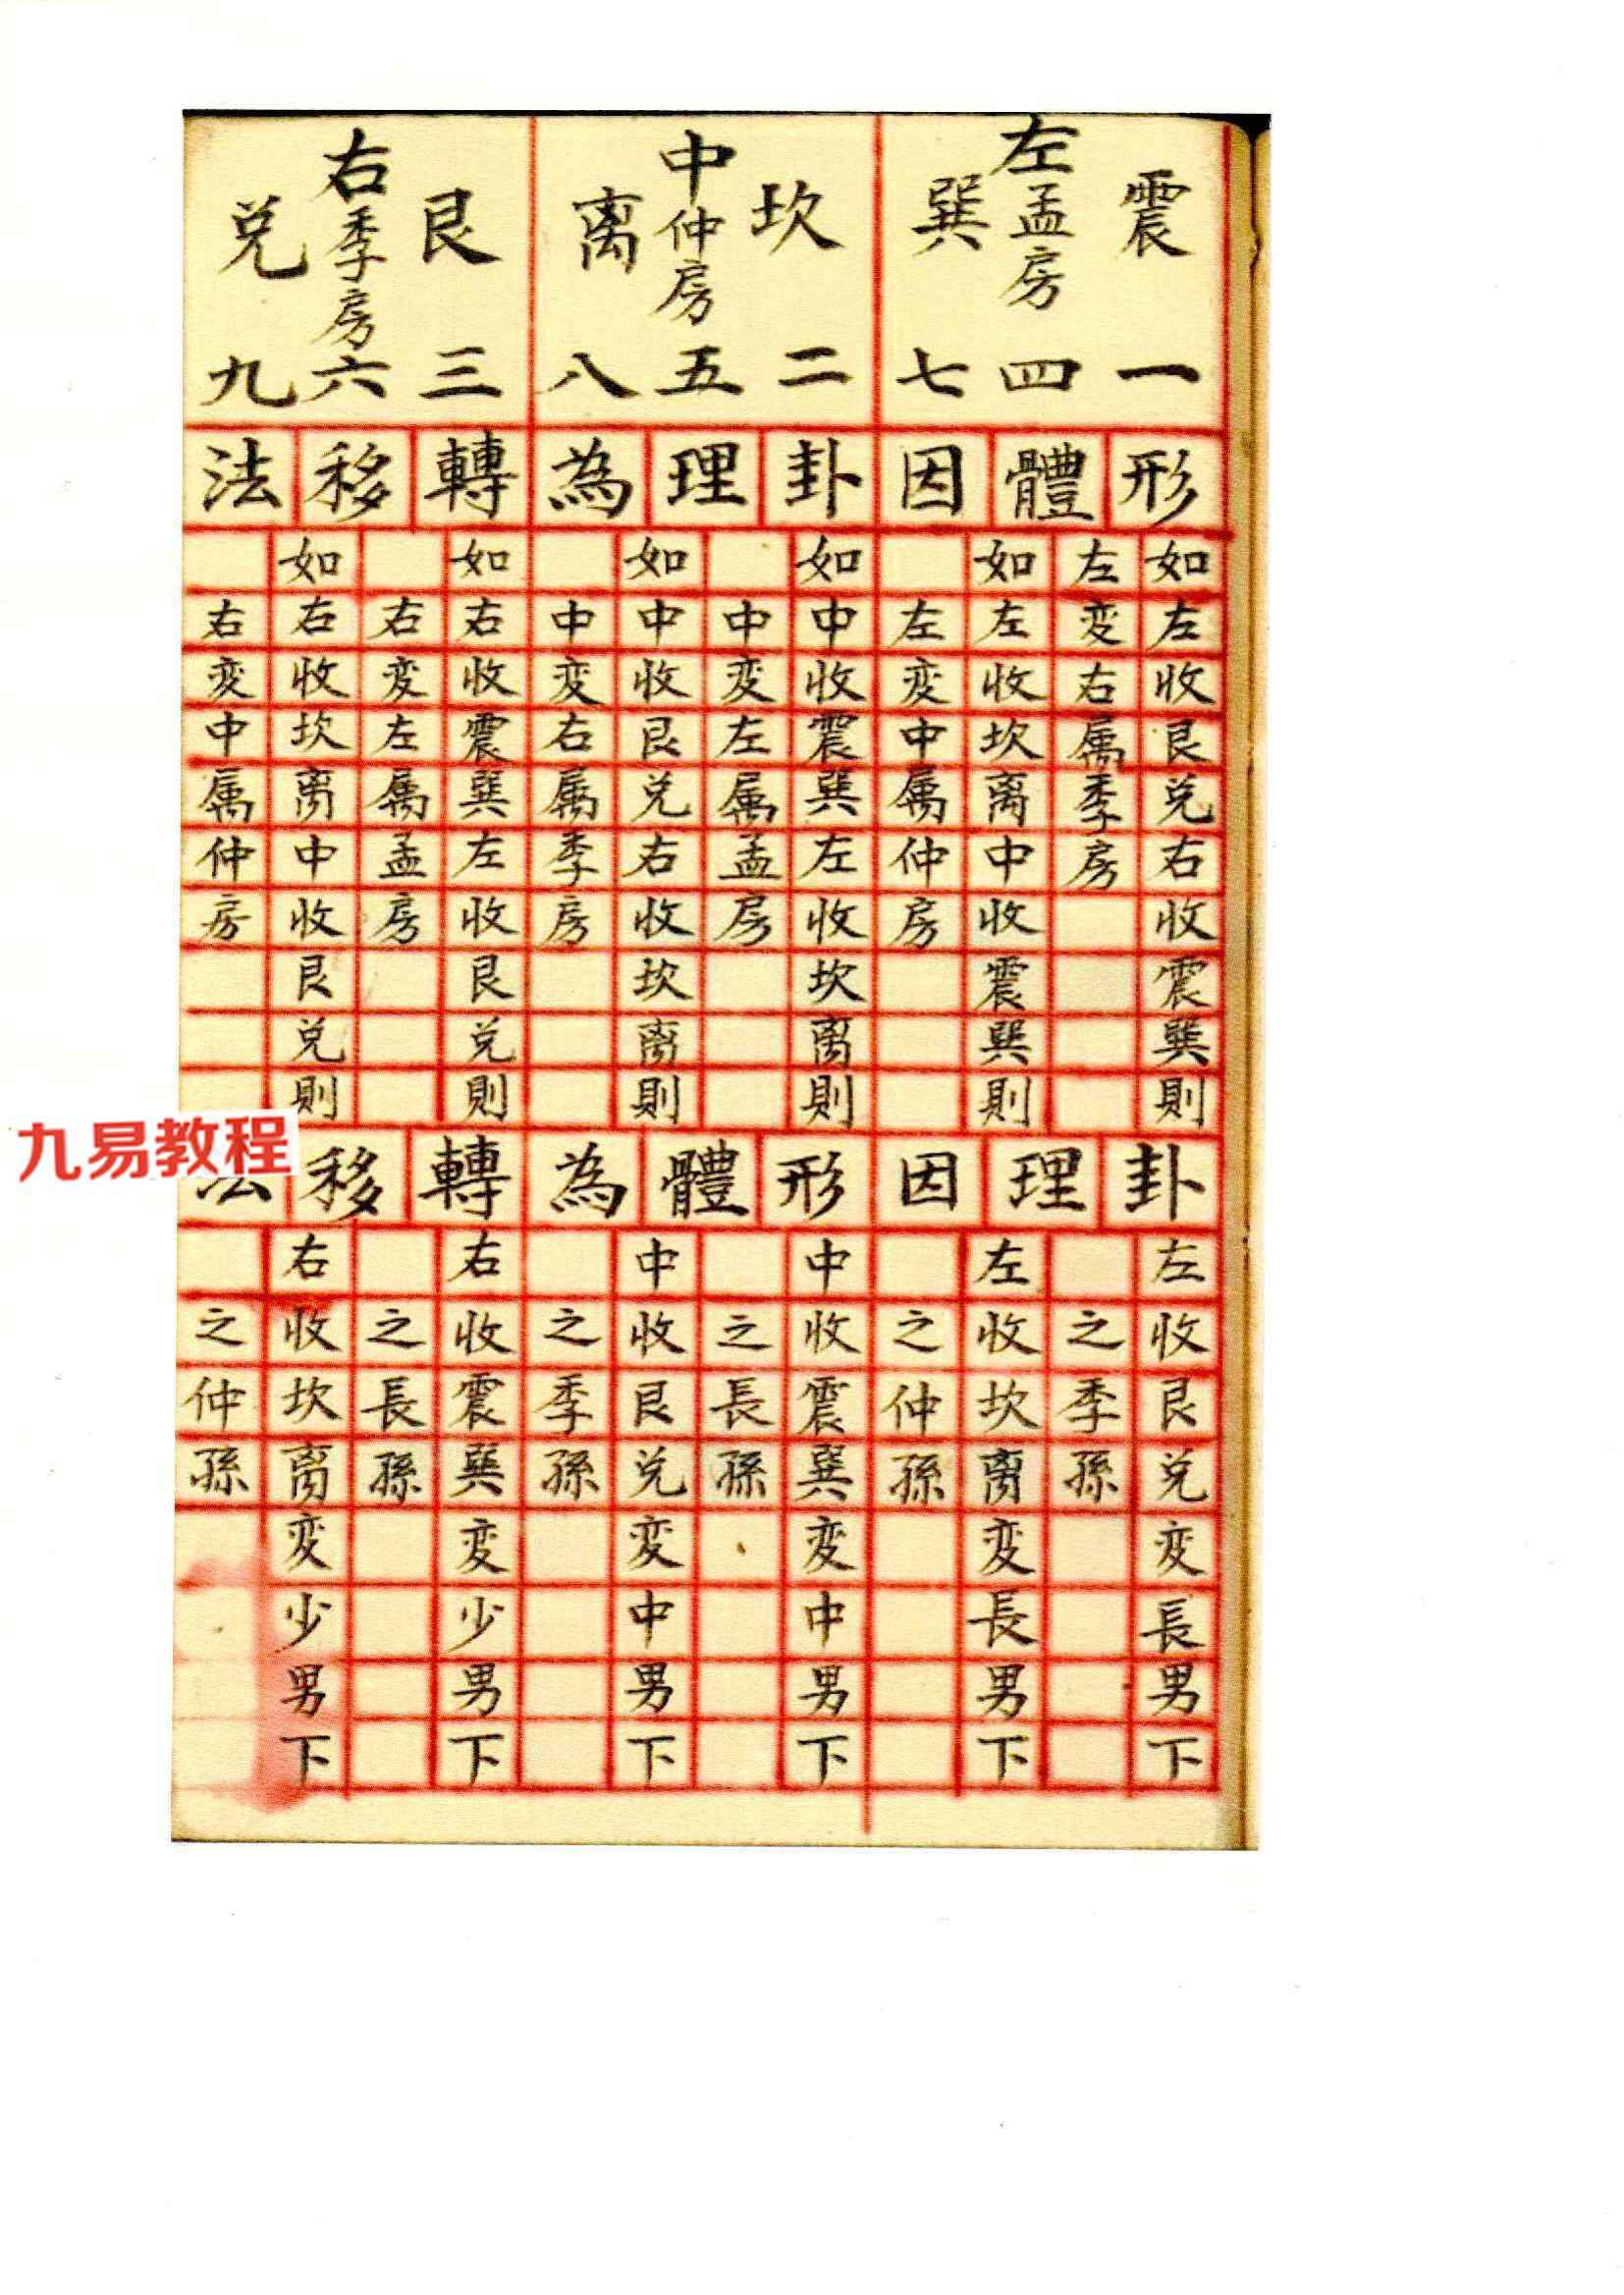 震
左孟房
巽
一四七
坎
中仲房
离
二五八
艮
右季房
兑
三六九
形體因卦理為轉移法
如左收艮兑右收震巽則
左变右属季房
如左收坎离中收震巽則
左变中属仲房
如中收震巽左收坎离則
中变左属孟房
如中收艮兑右收坎离則
中变右属季房
如右收震巽左收艮兑則
右变左属孟房
如右收坎离中收艮兑則
右变中属仲房
卦理因形體為轉移法
左收艮兑变長男下
之季孫
左收坎离变長男下
之仲孫
中收震巽变中男下
之長孫
中收艮兑变中男下
之季孫
右收震巽变少男下
之長孫
右收坎离变少男下
之仲孫
九易教程